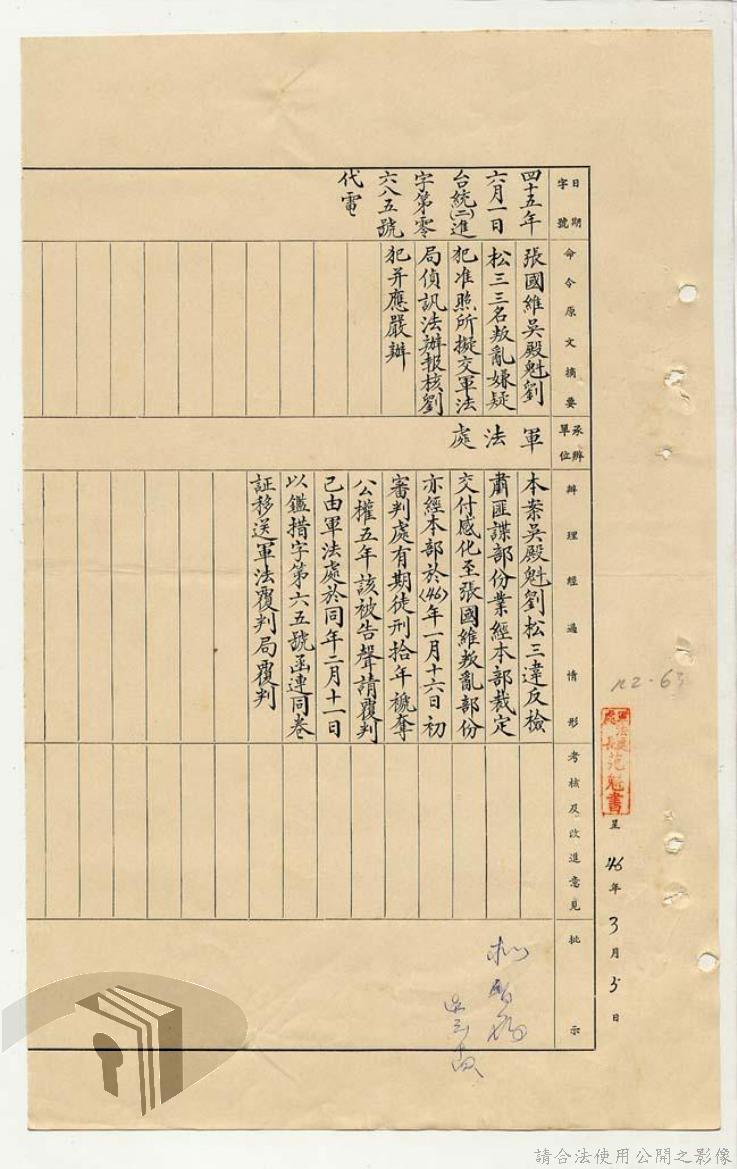 軍法處
處長范魁書
呈
46年3月5日
72-63
日期
字號
命令原文摘要
承辦單位
辦理經過情形
考核及改進意見
批示
四十五年
六月一日
台統(二)進
字第零
六八五號
代電
張國維吳殿魁劉
松三三名叛亂嫌疑
犯准照所擬交軍法
局偵訊法辦報核劉
犯并應嚴辦
軍法處
本案吳殿魁劉松三違反檢
肅匪諜部份業經本部裁定
交付感化至張國維叛亂部份
亦經本部於(46)年一月十六日初
審判處有期徒刑拾年褫奪
公權五年該被告聲請覆判
已由軍法處於同年二月十一日
以鑑措字第六五號函連同卷
証移送軍法覆判局覆判
請合法使用公開之影像